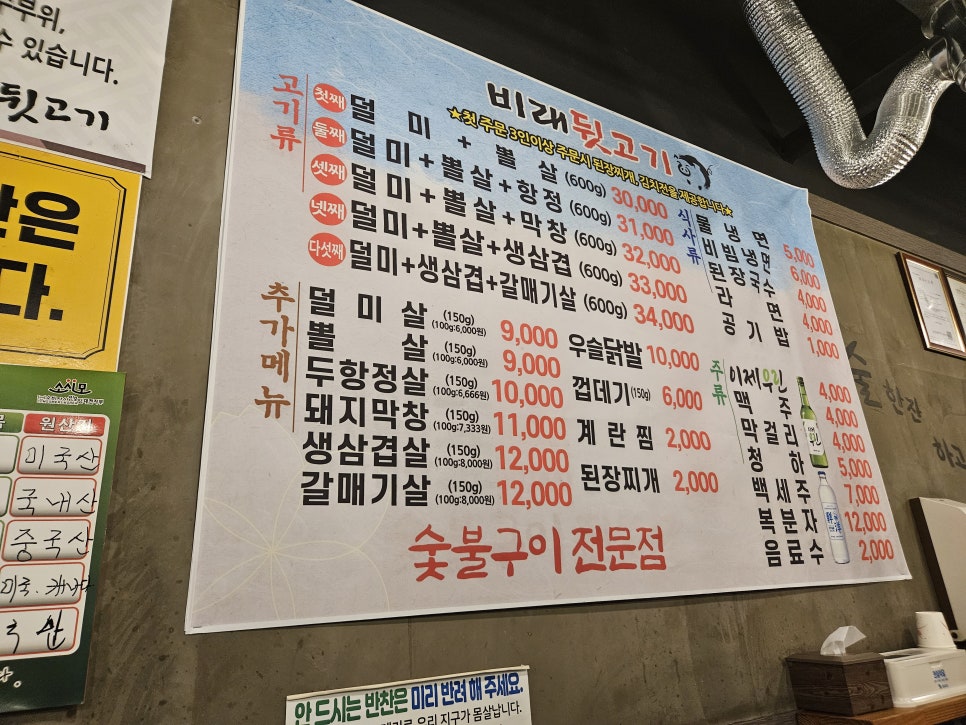 부위,
수 있습니다.
뒷고기
은
다.
소시모
원산지
미국산
국내산
중국산
미국. 캐나다
비래뒷고기
★첫 주문 3인이상 주문시 된장찌개, 김치전을 제공합니다★
고기류
첫째 덜미+뽈살 (600g) 30,000
둘째 덜미+뽈살+항정 (600g) 31,000
셋째 덜미+뽈살+막창 (600g) 32,000
넷째 덜미+뽈살+생삼겹 (600g) 33,000
다섯째 덜미+생삼겹+갈매기살 (600g) 34,000
추가메뉴
덜미살 (150g) (100g:6,000원) 9,000
뽈살 (150g) (100g:6,000원) 9,000
두항정살 (150g) (100g:6,666원) 10,000
돼지막창 (150g) (100g:7,333원) 11,000
생삼겹살 (150g) (100g:8,000원) 12,000
갈매기살 (150g) (100g:8,000원) 12,000
우슬닭발 10,000
껍데기 (150g) 6,000
계란찜 2,000
된장찌개 2,000
식사류
물냉면 5,000
비빔냉면 6,000
된장국수 4,000
라면 4,000
공기밥 1,000
주류
이제우린 4,000
맥주 4,000
막걸리 4,000
청하 5,000
백세주 7,000
복분자 12,000
음료수 2,000
숯불구이 전문점
술 한잔
하고
안 드시는 반찬은 미리 반려 해 주세요.
우리 지구가 몸살납니다.